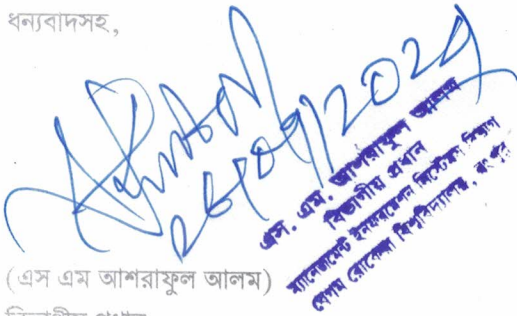 ধন্যবাদসহ,
এস. এম. আশরাফুল আলম
বিভাগীয় প্রধান
ম্যানেজমেন্ট ইনফরমেশন সিস্টেমস বিভাগ
বেগম রোকেয়া বিশ্ববিদ্যালয়, রংপুর
(এস এম আশরাফুল আলম)
বিভাগীয় প্রধান